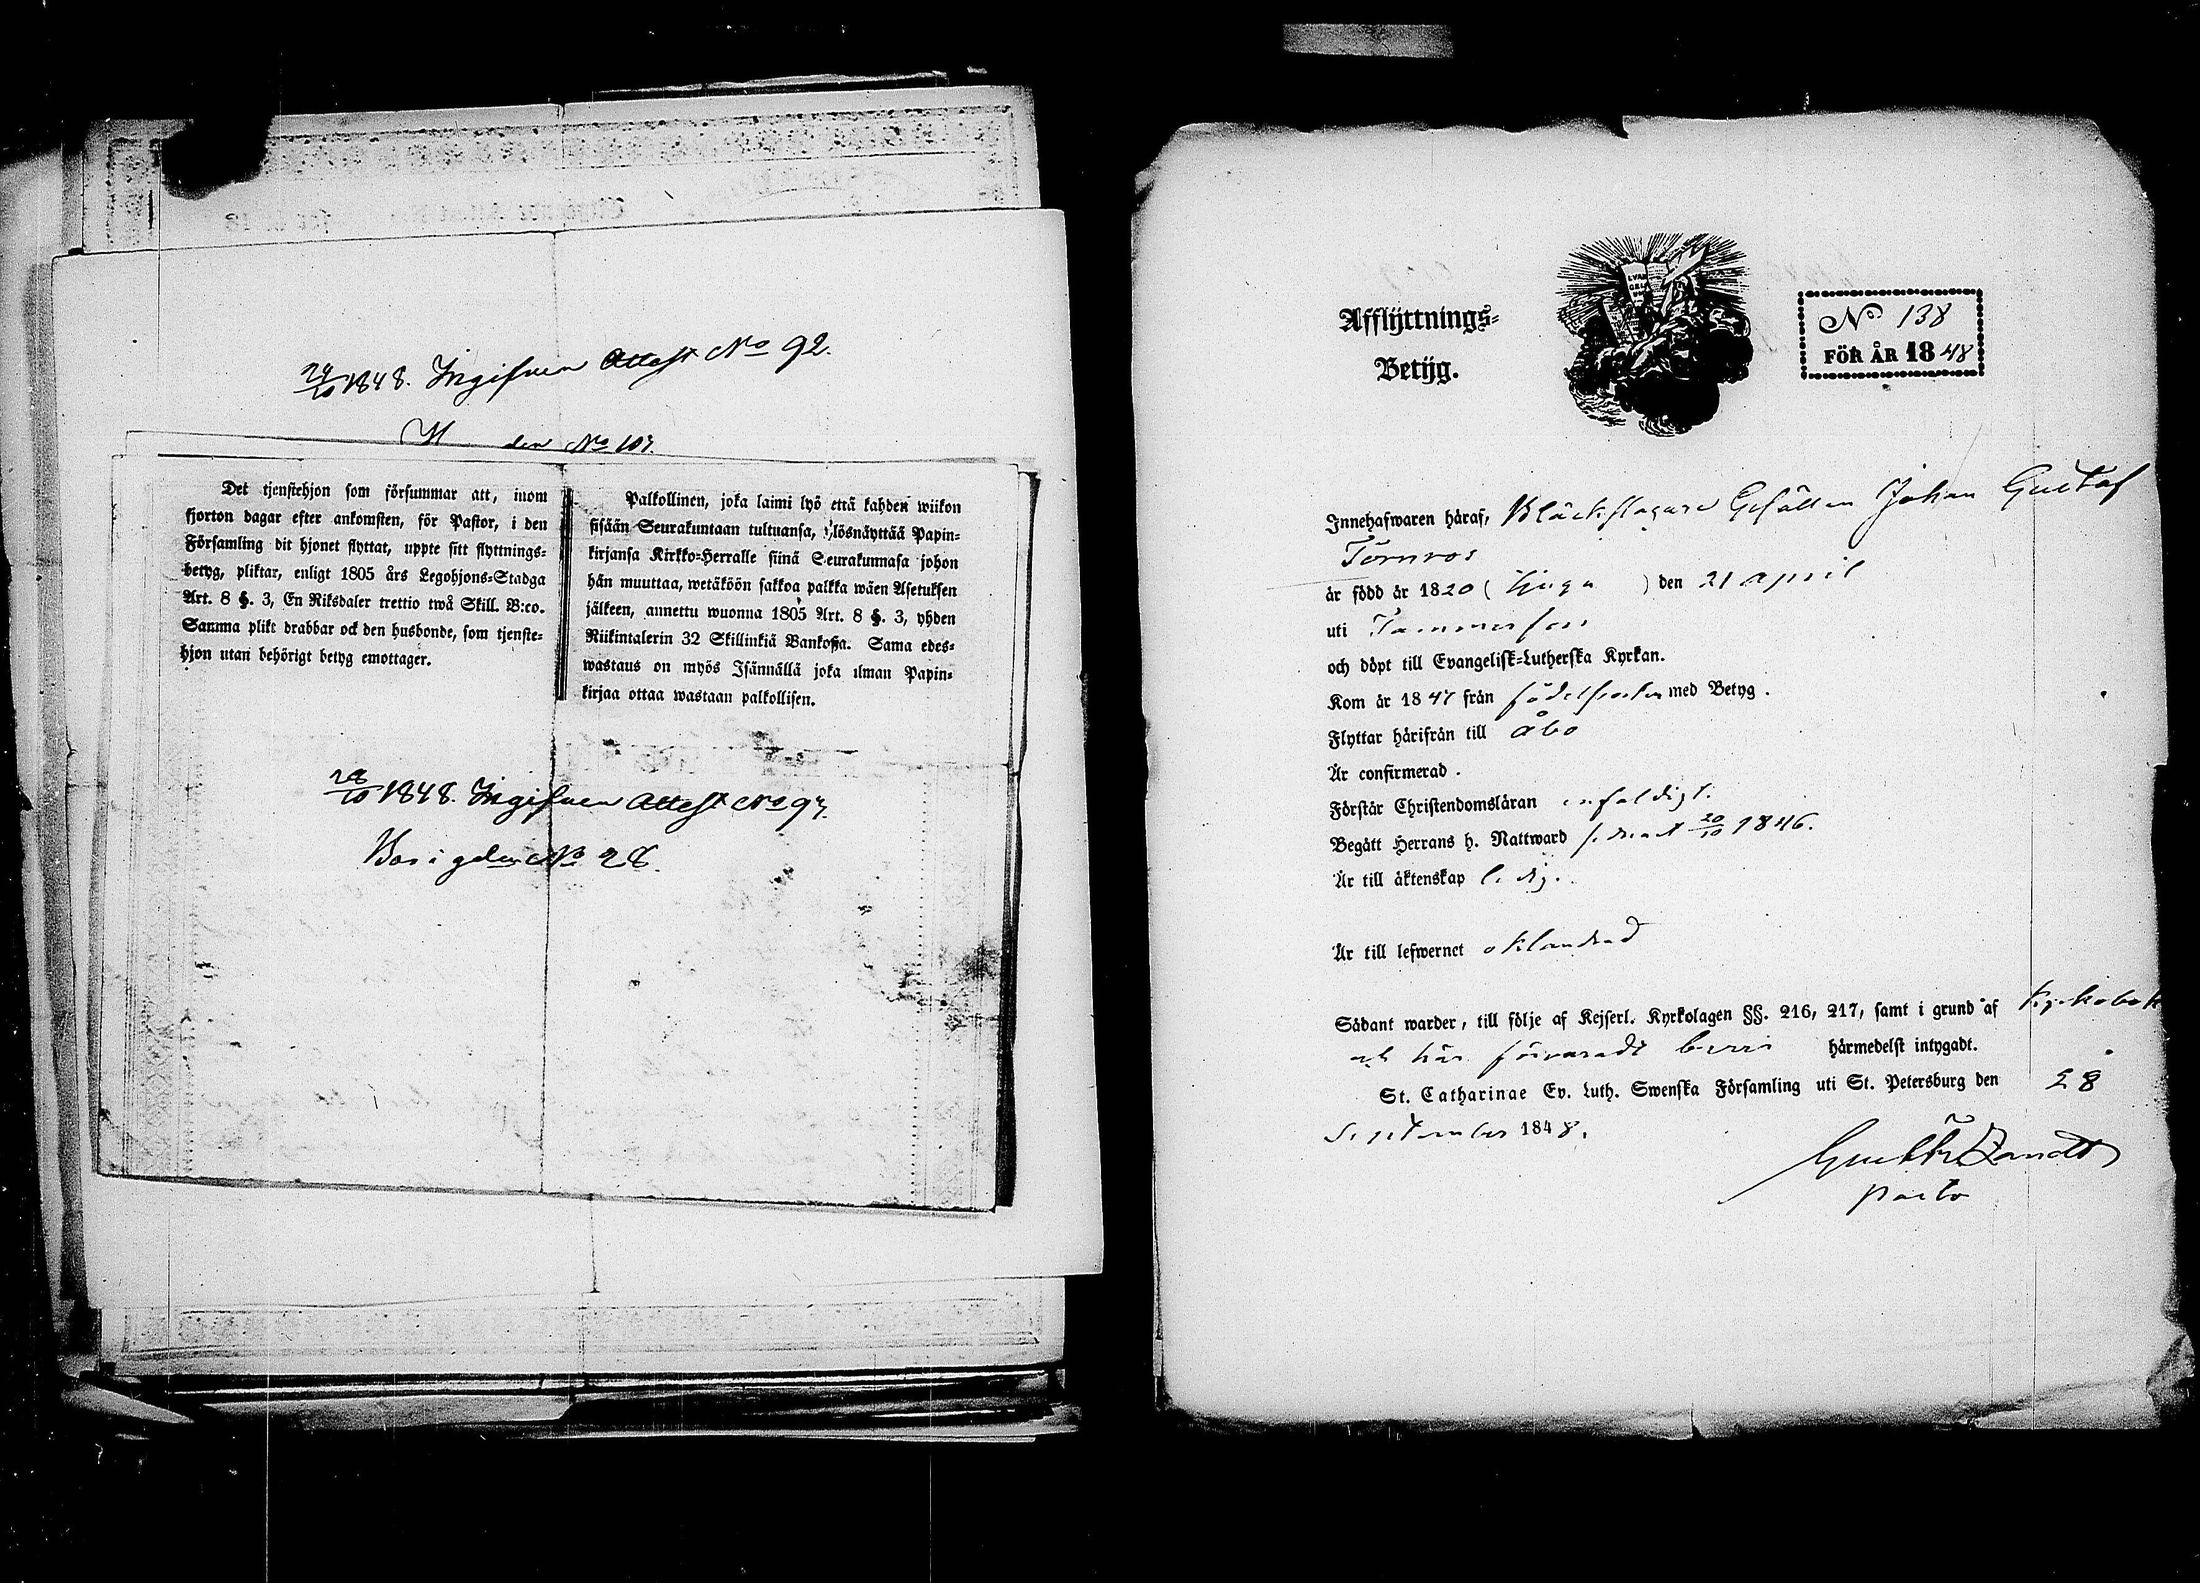 24/10 1848. Ingifven Attest No 92.
den No 107.
Det tjenstehjon som försummar att, inom
fjorton dagar efter ankomsten, för Pastor, i den
Församling dit hjonet flyttat, uppte sitt flyttnings-
betyg, pliktar, enligt 1805 års Legohjons-Stadga
Art. 8 §. 3, En Riksdaler trettio twå Skill. B:co.
Samma plikt drabbar ock den husbonde, som tjenste-
hjon utan behörigt betyg emottager.
Palkollinen, joka laimi lyö että kahden wiikon
sisään Seurakuntaan tultuansa, ylösnäyttää Papin-
kirjansa Kirkko-Herralle siinä Seurakunnasa johon
hän muuttaa, wetäköön sakkoa palkka wäen Asetuksen
jälkeen, annettu wuonna 1805 Art. 8 §. 3, yhden
Riikintalerin 32 Skillinkiä Bankosa. Sama edes-
wastaus on myös Isännällä joka ilman Papin-
kirjaa ottaa wastaan palkollisen.
28/10 1848. Ingifven Attest No 97.
No 28.
Afflyttnings-
Betyg.
EVAN
GELI
UM
No. 138
FÖR ÅR 1848
Innehafwaren häraf, Bläckslagare Gesällen Johan Gustaf
Törnros
är född år 1820 (tjugu) den 21 April
uti Tammerfors
och döpt till Evangelisk-Lutherska Kyrkan.
Kom år 1847 från födelseorten med Betyg.
Flyttar härifrån till Åbo
Är confirmerad.
Förstår Christendomsläran enfaldigt.
Begått Herrans h. Nattward senast 20/10 1846.
Är till äktenskap ledig.
Är till lefwernet oklandrad
Sådant warder, till följe af Kejserl. Kyrkolagen §§. 216, 217, samt i grund af Kyrkobok
och här förvaradt härmedelst intygadt.
St. Catharinae Ev. Luth. Swenska Församling uti St. Petersburg den 28
September 1848.